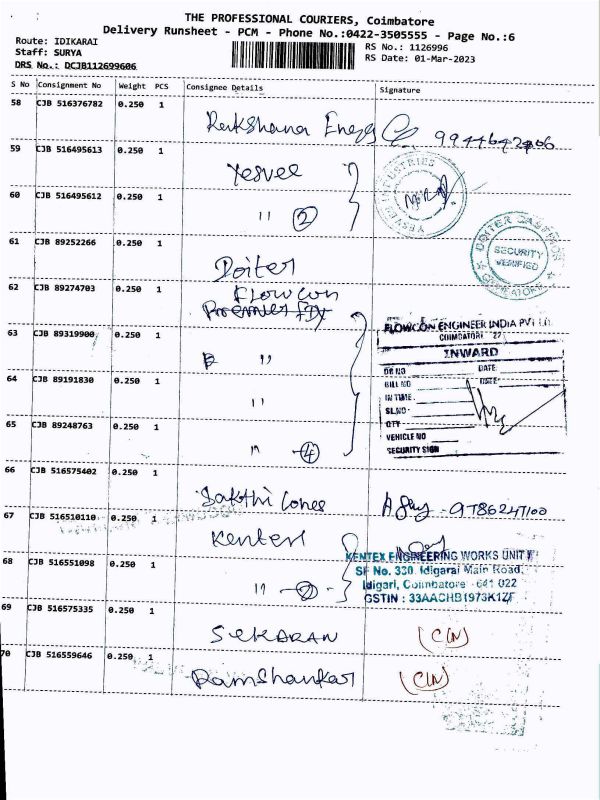 THE PROFESSIONAL COURIERS, Coimbatore
Delivery Runsheet - PCM - Phone No.:0422-3505555 - Page No.:6
Route: IDIKARAI
RS No.: 1126996
Staff: SURYA
RS Date: 01-Mar-2023
DRS No.: DCJB112699606
S No Consignment No Weight PCS Consignee Details Signature
58 CJB 516376782 0.250 1
Rakshana Energy
59 CJB 516495613 0.250 1
Yesvee
60 CJB 516495612 0.250 1
" (2)
YESTEE INDUSTRIES
61 CJB 89252266 0.250 1
Doiter
DOITER CASTINGS
SECURITY
VERIFIED
COIMBATORE
62 CJB 89274703 0.250 1
Flowcon
63 CJB 89319900 0.250 1
"
64 CJB 89191830 0.250 1
"
65 CJB 89248763 0.250 1
" (4)
FLOWCON ENGINEER INDIA PVT LTD.
COIMBATORE - 27
INWARD
DR NO DATE
BILL NO DATE
IN TIME
SL.NO
QTY
VEHICLE NO
SECURITY SIGN
66 CJB 516575402 0.250 1
Sakthi Cones
9786247100
67 CJB 516510110 0.250 1
Kentex
68 CJB 516551098 0.250 1
" (2)
KENTEX ENGINEERING WORKS UNIT II
SF No. 330, Idigarai Main Road,
Idigari, Coimbatore - 641 022
GSTIN : 33AACHB1973K1ZF
69 CJB 516575335 0.250 1
SEKARAN
(CIN)
70 CJB 516559646 0.250 1
RamShankar
(CIN)